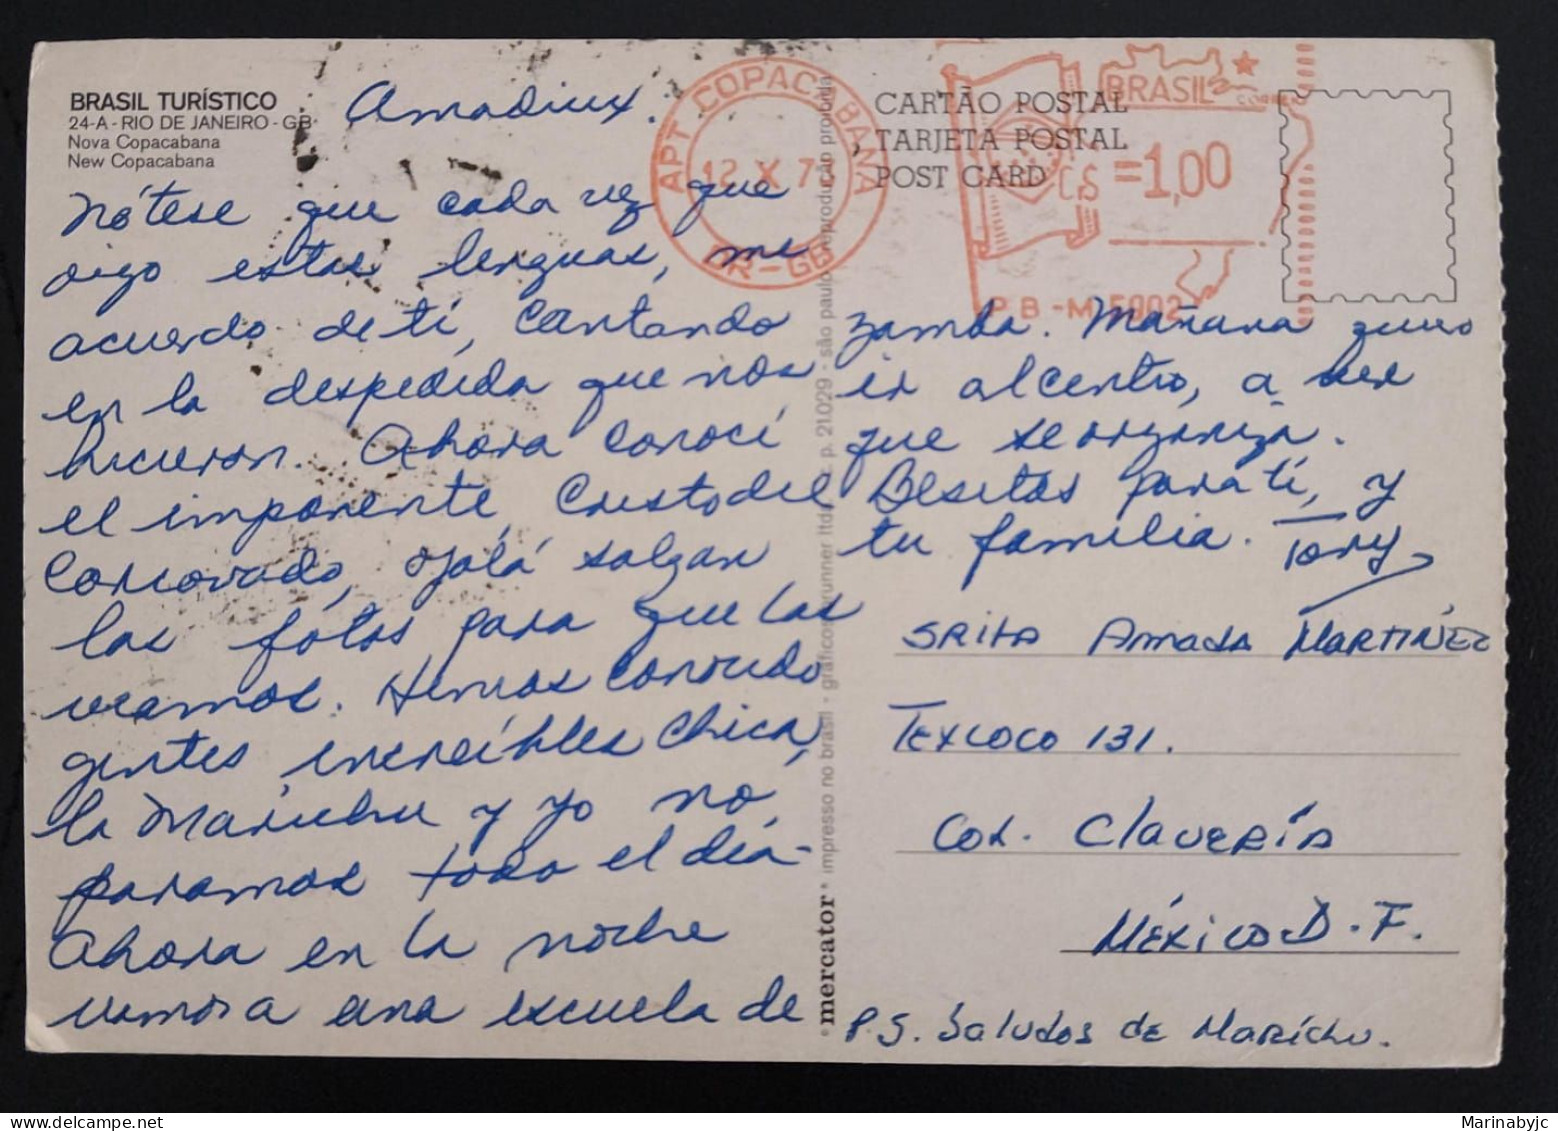 BRASIL TURÍSTICO
24-A - RIO DE JANEIRO - GB
Nova Copacabana
New Copacabana
Amadiux.
Nótese que cada vez que
oigo estas lenguas, me
acuerdo de ti, cantando
en la despedida que nos
hicieron. Ahora conocí
el imponente Cristo del
Corcovado, ojalá salgan
las fotos para que las
veamos. Hemos conocido
gentes increíbles chica,
la Marichu y yo no
paramos todo el día.
Ahora en la noche
vamos a una escuela de
zamba. Mañana quiero
ir al centro, a ver
que se organiza.
Besitos para ti, y
tu familia. Tony
CARTÃO POSTAL
TARJETA POSTAL
POST CARD
APT COPACABANA
12 X 7
DR-GB
BRASIL
CORREIO
C.S =1,00
P B - M 5002
SRITA AMADA MARTÍNEZ
TEXCOCO 131.
COL. CLAVERÍA
MÉXICO D.F.
P.S. Saludos de Marichu.
mercator* impresso no brasil - gráficos brunner ltda. c. p. 21.029 - são paulo - reprodução proibida
Marinabyjc